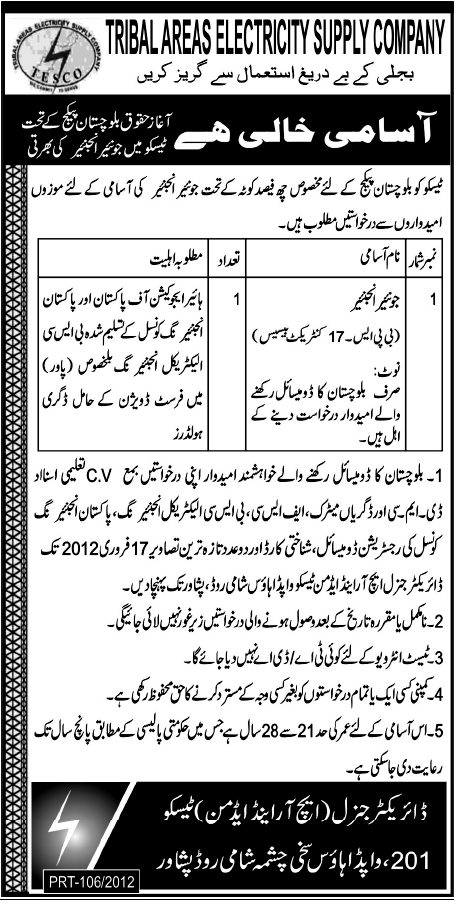 TRIBAL AREAS ELECTRICITY SUPPLY COMPANY
TRIBAL AREAS ELECTRICITY SUPPLY COMPANY
TESCO
بجلی کے بے دریغ استعمال سے گریز کریں
آسامی خالی ھے
آغاز حقوق بلوچستان پیکج کے تحت
ٹیسکو میں جونیئر انجنیئر کی بھرتی
ٹیسکو کو بلوچستان پیکج کے لئے مخصوص چھ فیصد کوٹہ کے تحت جونیئر انجنیئر کی آسامی کے لئے موزوں
امیدواروں سے درخواستیں مطلوب ہیں۔
نمبر شمار
نام آسامی
تعداد
مطلوبہ اہلیت
1
جونیئر انجنیئر
(بی پی ایس۔17 کنٹریکٹ بیسیس)
نوٹ:
صرف بلوچستان کا ڈومیسائل رکھنے
والے امیدوار درخواست دینے کے
اہل ہیں۔
1
ہائیر ایجوکیشن آف پاکستان اور پاکستان
انجنیئرنگ کونسل کے تسلیم شدہ بی ایس سی
الیکٹریکل انجنیئرنگ بلخصوص (پاور)
میں فرسٹ ڈویژن کے حامل ڈگری
ہولڈرز
1۔ بلوچستان کا ڈومیسائل رکھنے والے خواہشمند امیدوار اپنی درخواستیں بمع C.V تعلیمی اسناد
ڈی۔ ایم۔ سی اور ڈگریاں میٹرک، ایف ایس سی، بی ایس سی الیکٹریکل انجنیئرنگ، پاکستان انجنیئرنگ
کونسل کی رجسٹریشن ڈومیسائل، شناختی کارڈ اور دو عدد تازہ ترین تصاویر 17 فروری 2012 تک
ڈائریکٹر جنرل ایچ آر اینڈ ایڈمن ٹیسکو واپڈا ہاؤس شامی روڈ، پشاور تک پہنچا دیں۔
2۔ نامکمل یا مقررہ تاریخ کے بعد وصول ہونے والی درخواستیں زیر غور نہیں لائی جائیگی۔
3۔ ٹیسٹ انٹرویو کے لئے کوئی ٹی اے / ڈی اے نہیں دیا جائے گا۔
4۔ کمپنی کسی ایک یا تمام درخواستوں کو بغیر کسی وجہ کے مسترد کرنے کا حق محفوظ رکھتی ہے۔
5۔ اس آسامی کے لئے عمر کی حد 21 سے 28 سال ہے جس میں حکومتی پالیسی کے مطابق پانچ سال تک
رعایت دی جا سکتی ہے۔
ڈائریکٹر جنرل (ایچ آر اینڈ ایڈمن) ٹیسکو
201، واپڈا ہاؤس سخی چشمہ شامی روڈ پشاور
PRT-106/2012